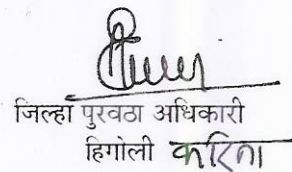 जिल्हा पुरवठा अधिकारी
हिंगोली करिता